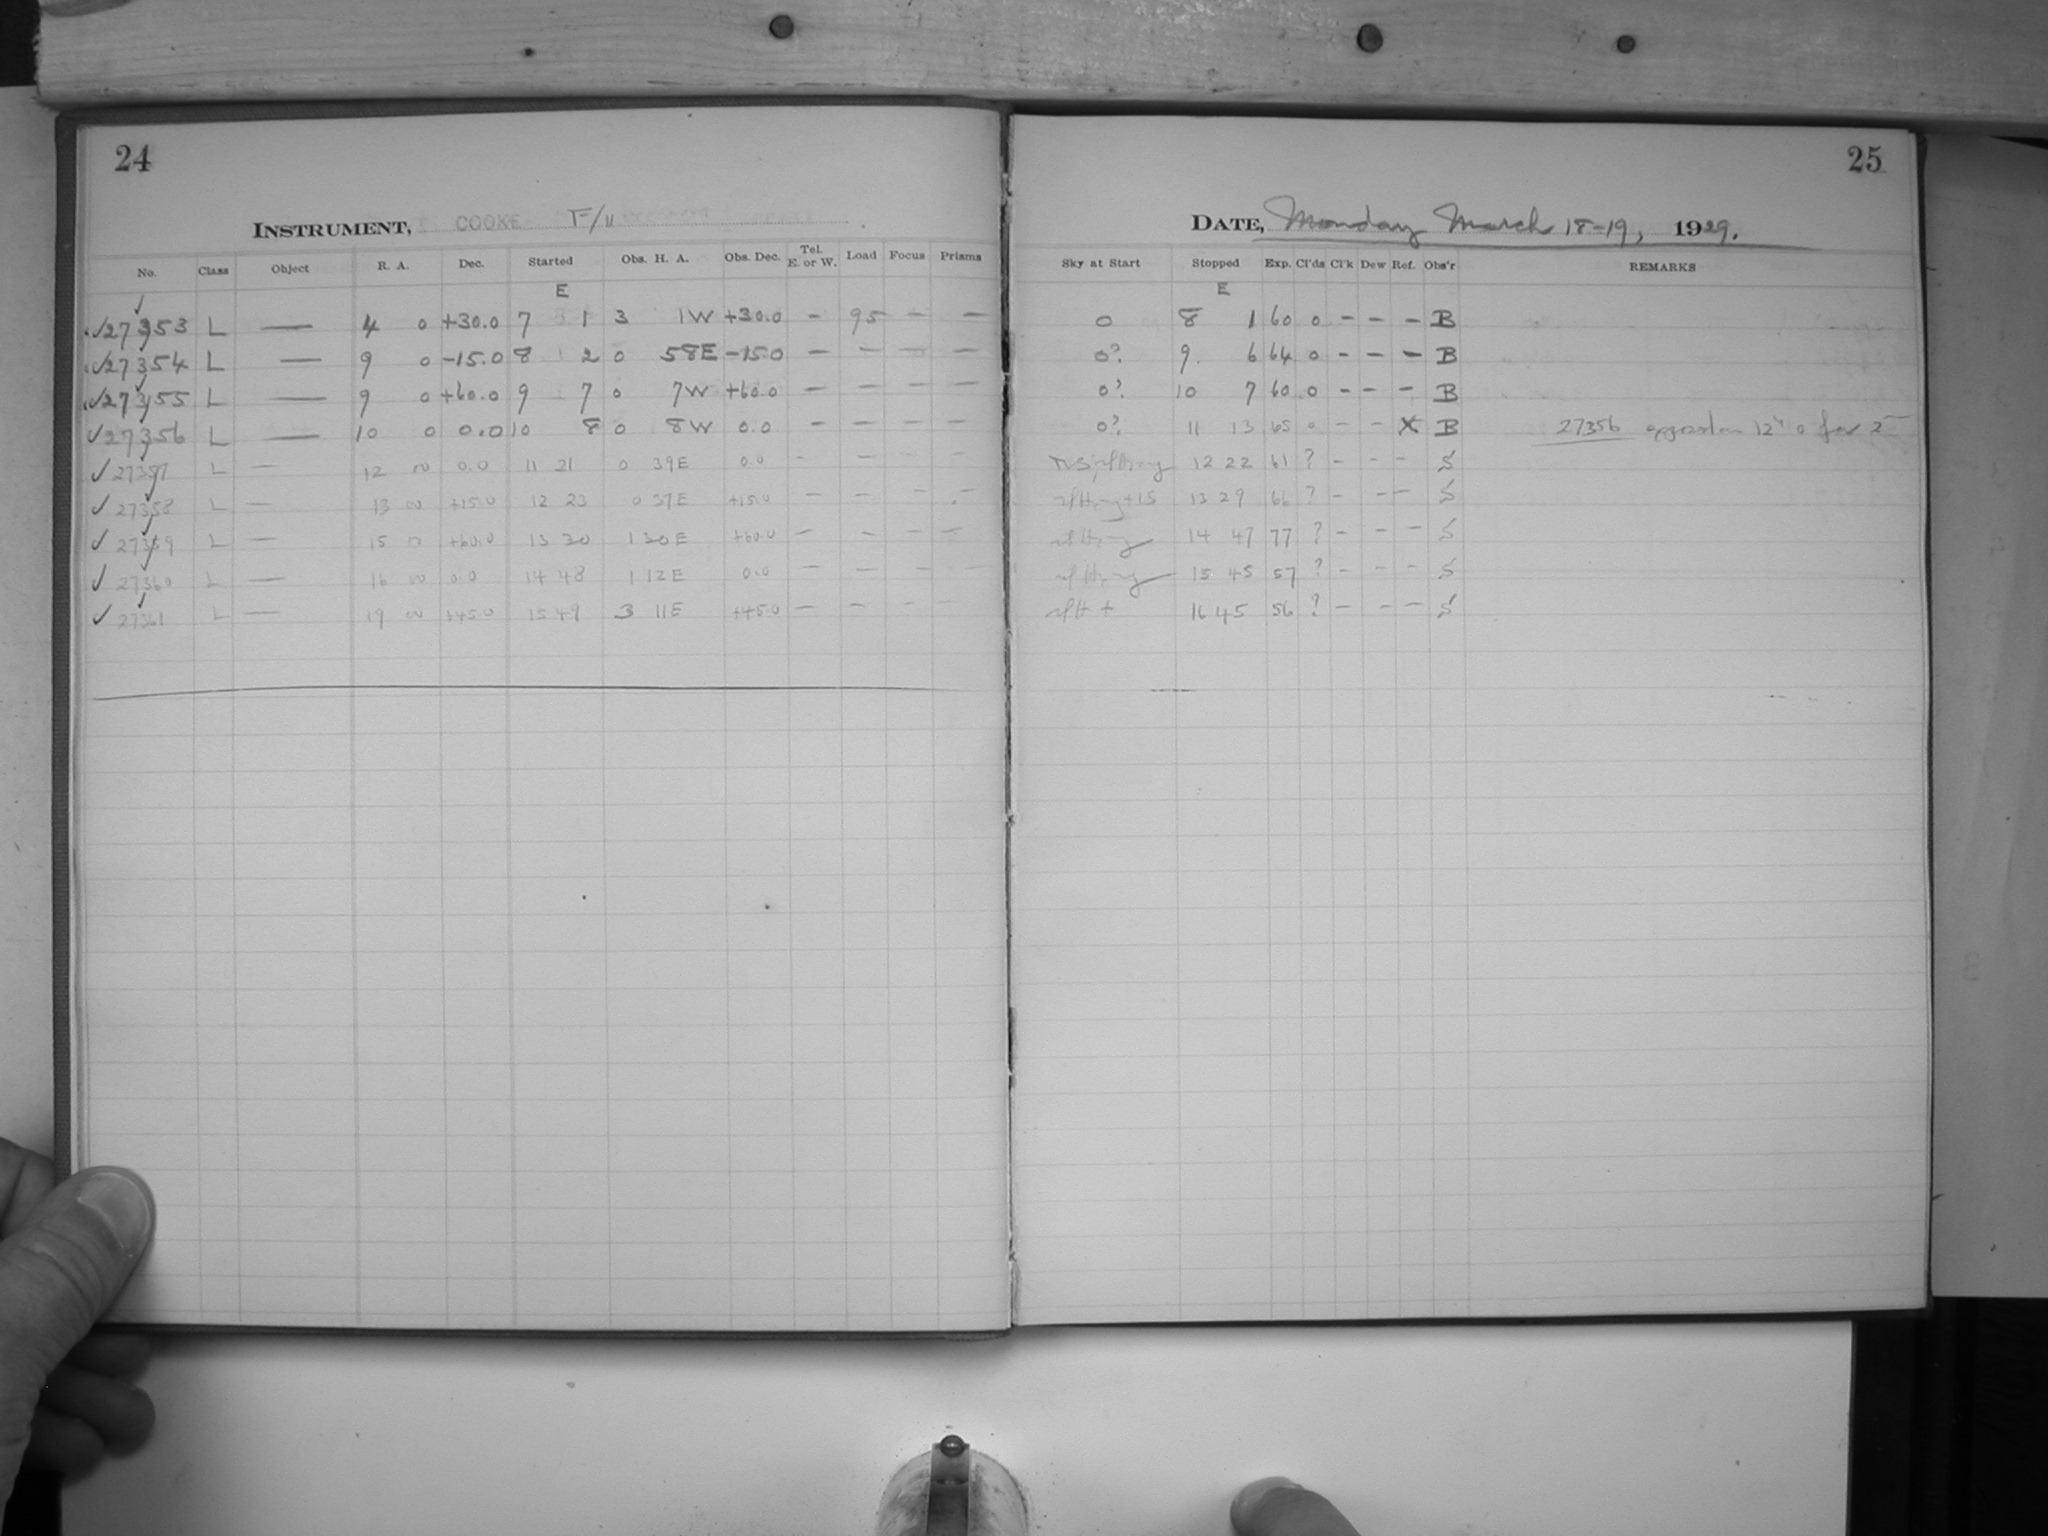 24
INSTRUMENT, COOKE
No. Class Object R. A. Dec. Started Obs. H. A. Obs. Dec. Tel. E. or W. Load Focus Prisms
E
27353 L — 4 0 +30.0 7 1 3 1W +30.0 - 95 - -
27354 L — 9 0 -15.0 8 2 0 58E -15.0 - - - -
27355 L — 9 0 +60.0 9 7 0 7W +60.0 - - - -
27356 L — 10 0 0.0 10 8 0 8W 0.0 - - - -
27357 L — 12 00 0.0 11 21 0 39E 0.0 - - - -
27358 L — 13 00 +15.0 12 23 0 37E +15.0 - - - -
27359 L — 15 00 +60.0 13 30 1 30E +60.0 - - - -
27360 L — 16 00 0.0 14 48 1 12E 0.0 - - - -
27361 L — 19 00 +45.0 15 49 3 11E +45.0 - - - -
25
DATE, Monday March 18-19, 1929.
Sky at Start Stopped Exp. Cl'ds Cl'k Dew Ref. Obs'r REMARKS
E
0 8 1 60 0 - - - B
0? 9 6 64 0 - - - B
0? 10 7 60 0 - - - B
0? 11 13 65 0 - - X B 27356
12 22 61 ? - - - S
13 29 66 ? - - - S
14 47 77 ? - - - S
15 45 57 ? - - - S
16 45 56 ? - - - S